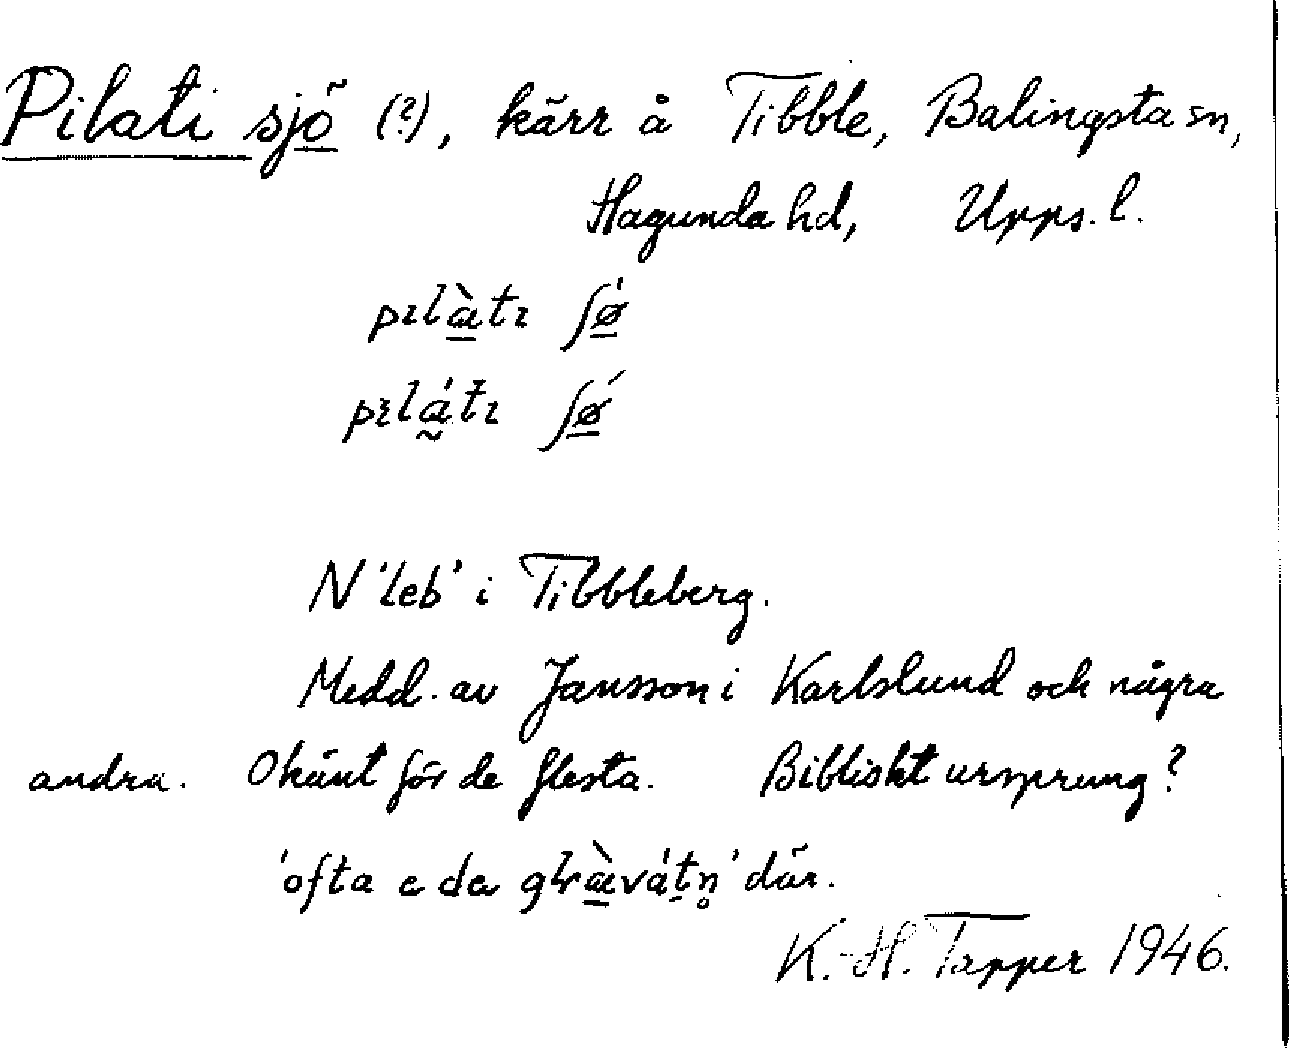 Pilati sjö (?), kärr å Tibble, Balingsta sn,
Hagunda hd, Upps. l.
pɪlàtɪ ʃø̀
pɪlátɪ ʃǿ
N 'leb' i Tibbleberg.
Medd. av Jansson i Karlslund och några
andra. Okänt för de flesta. Bibliskt ursprung?
'ofta e da gɽàvátn̥' där.
K.-H. Tapper 1946.